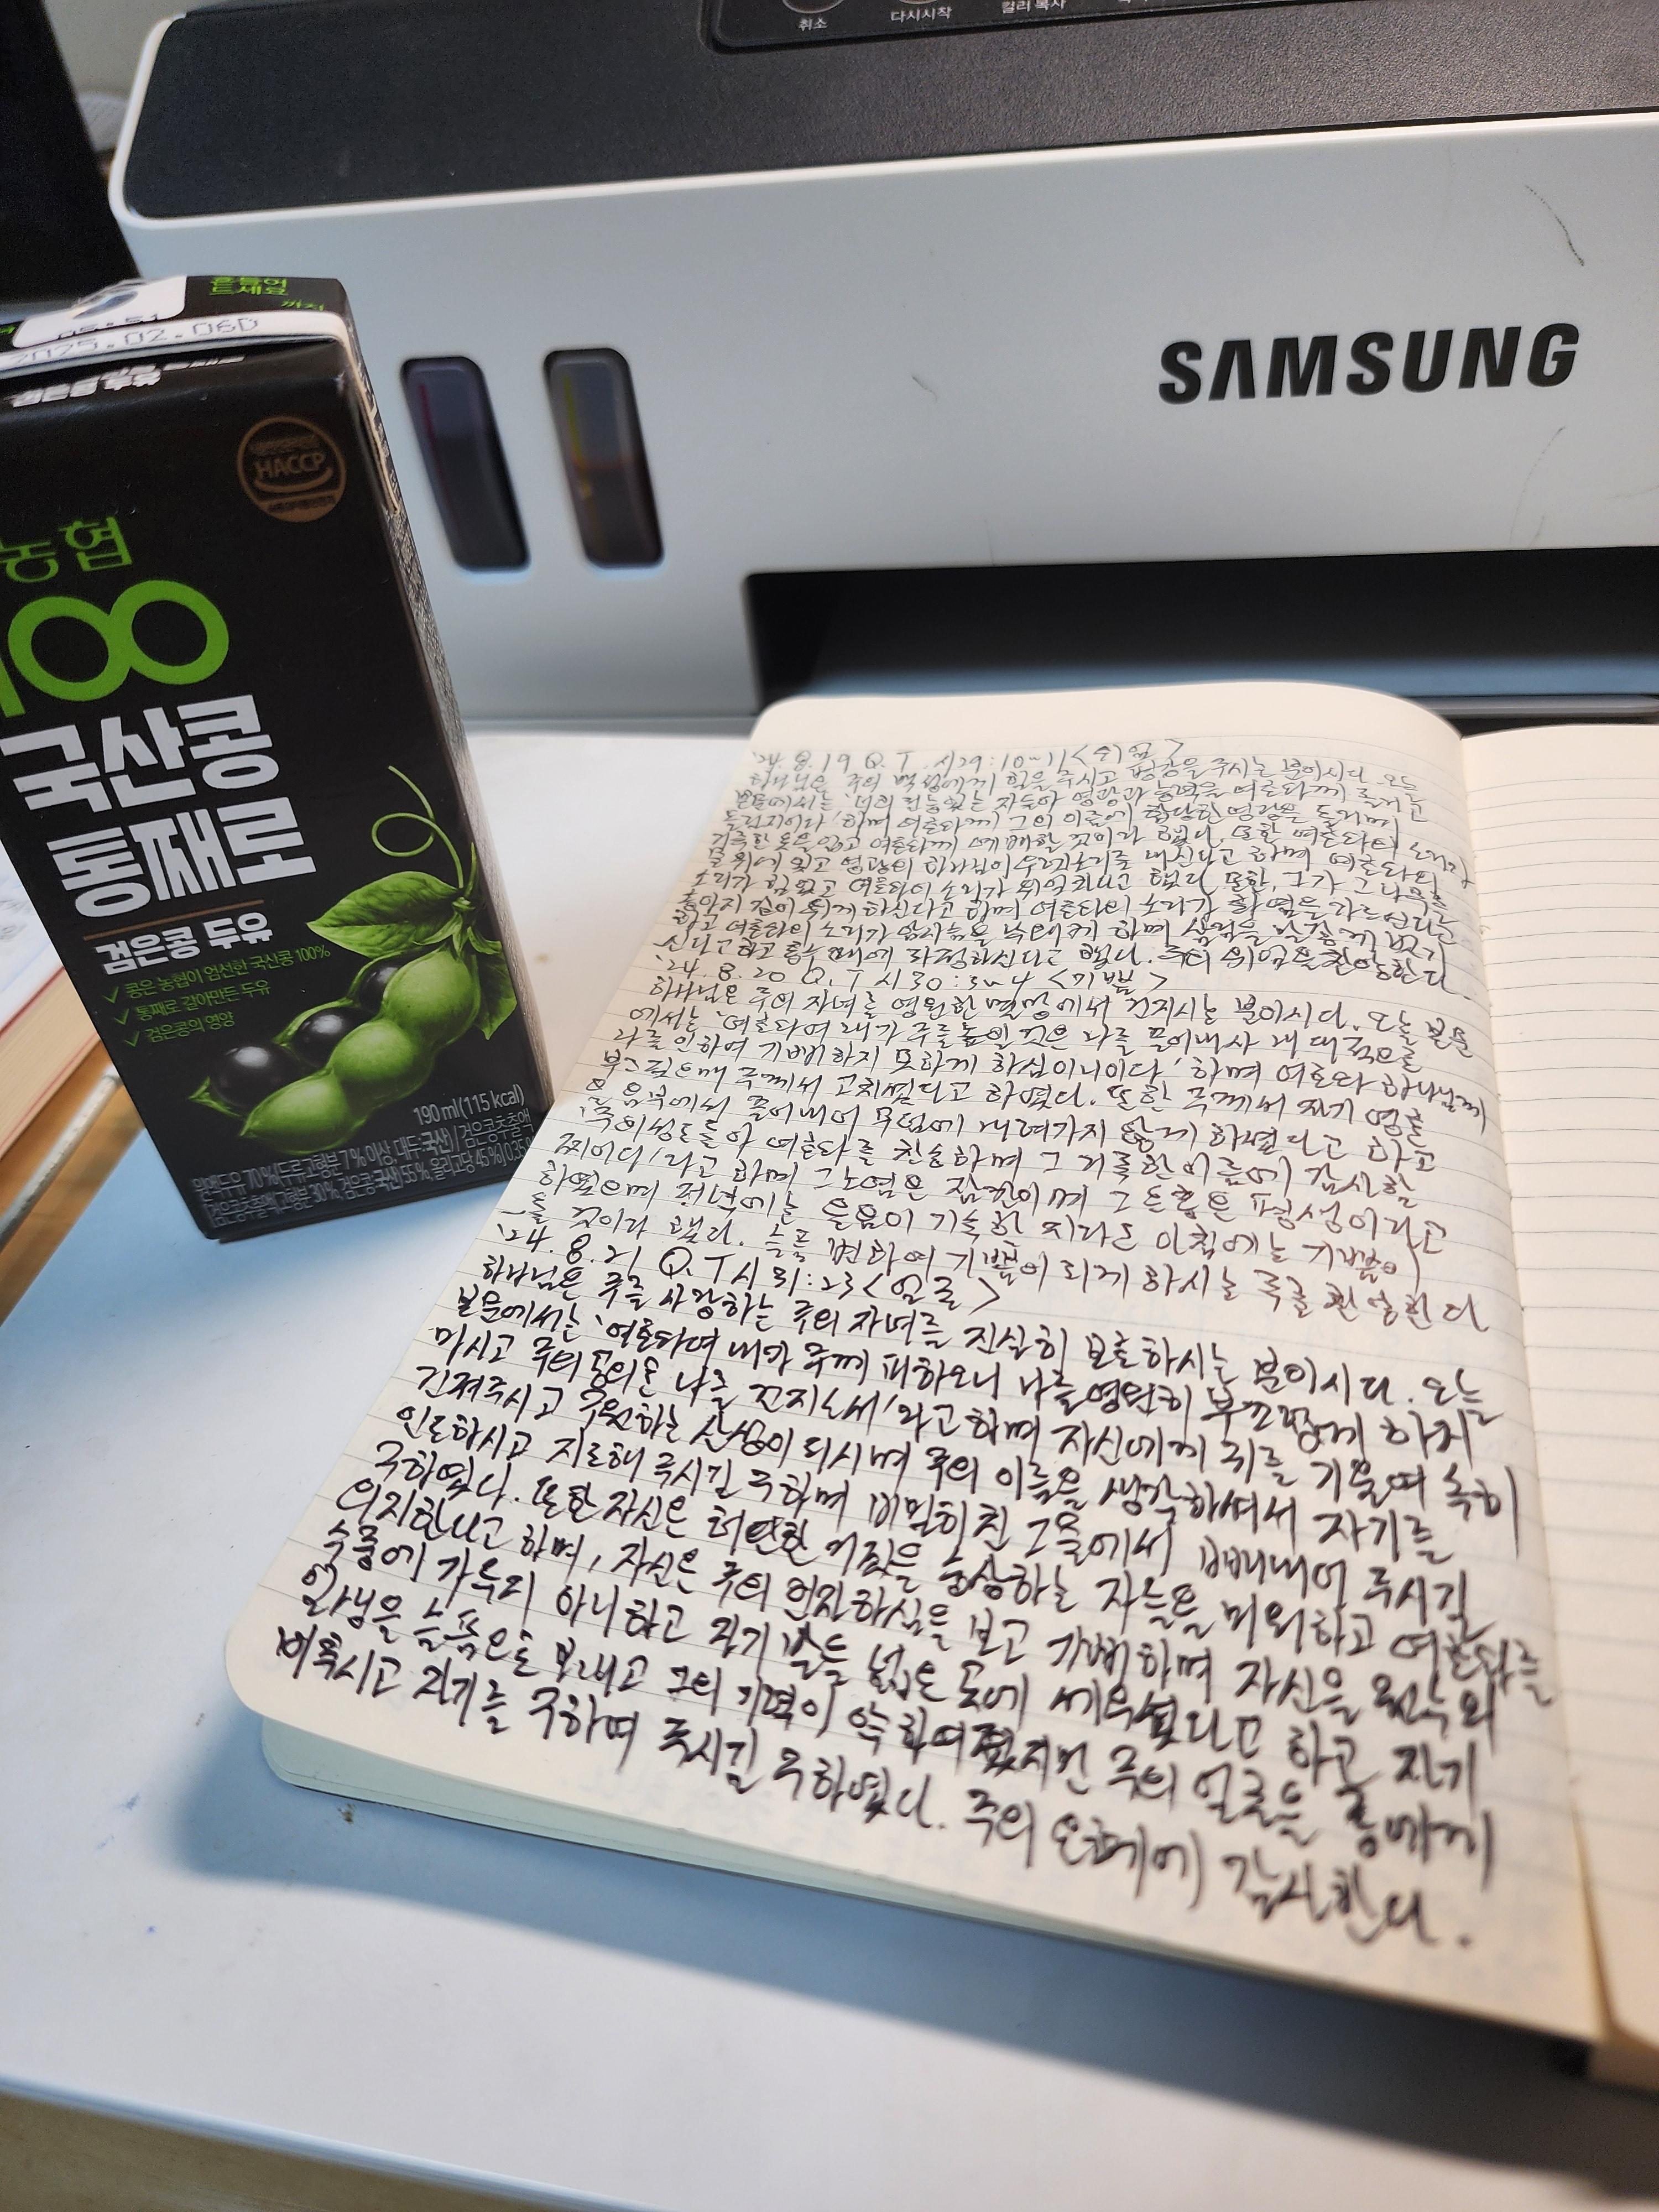 취소
다시시작
컬러 복사
SAMSUNG
흔들어
드세요
2025.02.06D
HACCP
농협
100
국산콩
통째로
검은콩 두유
콩은 농협이 엄선한 국산콩 100%
통째로 갈아만든 두유
검은콩의 영양
190 ml(115 kcal)
'24. 8. 19 Q. T. 시29:10~11 <위엄>
하나님은 주의 백성에게 힘을 주시고 평강을 주시는 분이시다. 오늘
본문에서는 '너희 권능 있는 자들아 영광과 능력을 여호와께 돌리고
돌릴지어다' 하며 여호와께 그의 이름에 합당한 영광을 돌리며
거룩한 옷을 입고 여호와께 예배할 것이라 했다. 또한 여호와의 소리가
물 위에 있고 영광의 하나님이 우렛소리를 내신다고 하며 여호와의
소리가 힘 있고 여호와의 소리가 위엄차다고 했다. 또한, 그가 그 나무를
송아지 같이 뛰게 하신다고 하며 여호와의 소리가 화염을 가르신다고
하고 여호와의 소리가 암사슴을 낙태하게 하며 삼림을 말갛게 벗기
신다고 하고 홍수 때에 좌정하신다고 했다. 주의 위엄을 찬양한다.
'24. 8. 20 Q. T 시 30:3~4 <기쁨>
하나님은 주의 자녀를 영원한 멸망에서 건지시는 분이시다. 오늘 본문
에서는 '여호와여 내가 주를 높일 것은 나를 끌어내사 내 대적으로
나를 인하여 기뻐하지 못하게 하심이니이다' 하며 여호와 하나님께
부르짖으매 주께서 고치셨다고 하였다. 또한 주께서 자기 영혼
을 음부에서 끌어내어 무덤에 내려가지 않게 하셨다고 하고
'주의 성도들아 여호와를 찬송하며 그 거룩한 이름에 감사할
찌어다'라고 하며 그 노염은 잠깐이며 그 은총은 평생이라고
하였으며 저녁에는 울음이 기숙할 지라도 아침에는 기쁨이
올 것이라 했다. 슬픔 변하여 기쁨이 되게 하시는 주를 찬양한다
'24. 8. 21 Q. T 시 31:23 <얼굴>
하나님은 주를 사랑하는 주의 자녀를 진실히 보호하시는 분이시다. 오늘
본문에서는 '여호와여 내가 주께 피하오니 나를 영원히 부끄럽게 하지
마시고 주의 공의로 나를 건지소서'라고 하며 자신에게 귀를 기울여 속히
건져주시고 구원하는 산성이 되시며 주의 이름을 생각하셔서 자기를
인도하시고 지도해 주시길 구하며 비밀히 친 그물에서 빼내어 주시길
구하였다. 또한 자신은 허탄한 거짓을 숭상하는 자들을 미워하고 여호와를
의지한다고 하며, 자신은 주의 인자하심을 보고 기뻐하며 자신을 원수의
수중에 가두지 아니하고 자기 발을 넓은 곳에 세우셨다고 하고 자기
일생을 슬픔으로 보내고 그의 기력이 약하여졌지만 주의 얼굴을 종에게
비추시고 자기를 구하여 주시길 구하였다. 주의 은혜에 감사한다.